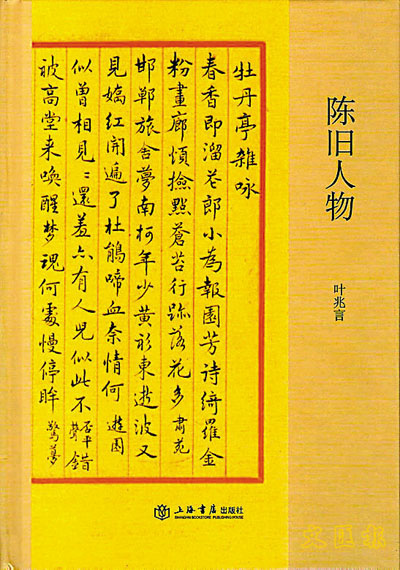 陈旧人物
叶兆言
牡丹亭雜咏
春香即溜花郎小為報園芳詩綺羅金
粉畫廊煩撿點蒼苔行跡落花多 肅苑
邯鄲旅舍夢南柯年少黃衫東逝波又
見嫣紅開遍了杜鵑啼血奈情何 遊園
似曾相見〻還羞亦有人兒似此不 否平聲 錯
被高堂来喚醒梦魂何處慢停眸 驚夢
上海書店出版社
SHANGHAI BOOKSTORE PUBLISHING HOUSE
文匯報